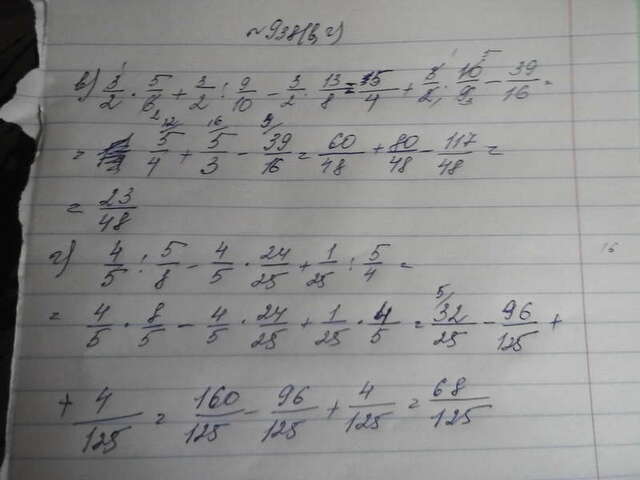 №938(в,г)
в) 3/2 · 5/6 + 3/2 : 9/10 - 3/2 · 13/8 = 5/4 + 3/2 · 10/9 - 39/16 =
= 5/4 + 5/3 - 39/16 = 60/48 + 80/48 - 117/48 =
= 23/48
г) 4/5 : 5/8 - 4/5 · 24/25 + 1/25 : 5/4 =
= 4/5 · 8/5 - 4/5 · 24/25 + 1/25 · 4/5 = 32/25 - 96/125 +
+ 4/125 = 160/125 - 96/125 + 4/125 = 68/125